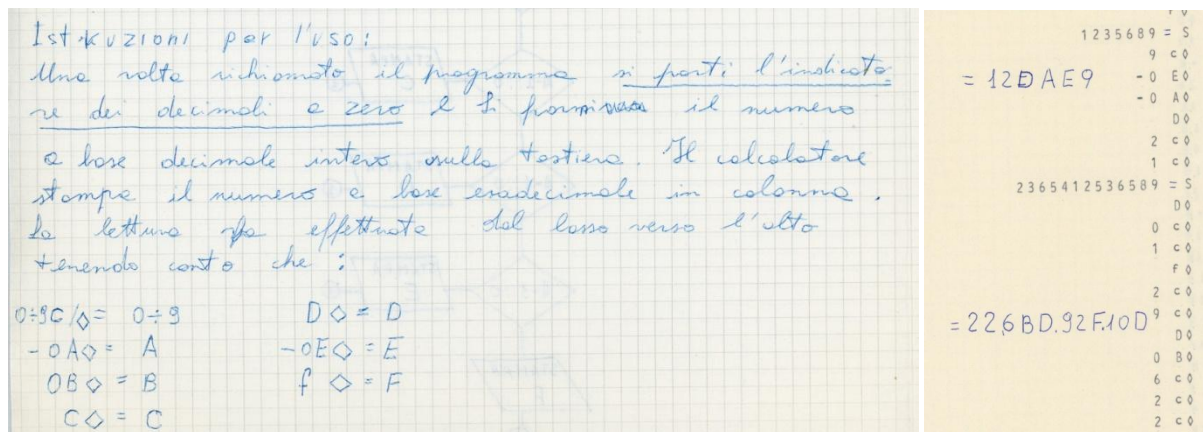 Istruzioni per l'uso:
Una volta richiamato il programma si porti l'indicato=
re dei decimali a zero e si formi il numero
a base decimale intero sulla tastiera. Il calcolatore
stampa il numero a base esadecimale in colonna.
La lettura va effettuata dal basso verso l'alto
tenendo conto che:
0÷9C/◇= 0÷9 D◇= D
-0A◇= A -0E◇= E
0B◇= B f ◇= F
C◇= C
1235689 = S
9 c◊
= 12DAE9 -0 E◊
-0 A◊
D◊
2 c◊
1 c◊
2365412536589 = S
D◊
0 c◊
1 c◊
f◊
2 c◊
=226BD.92F.10D 9 c◊
D◊
0 B◊
6 c◊
2 c◊
2 c◊